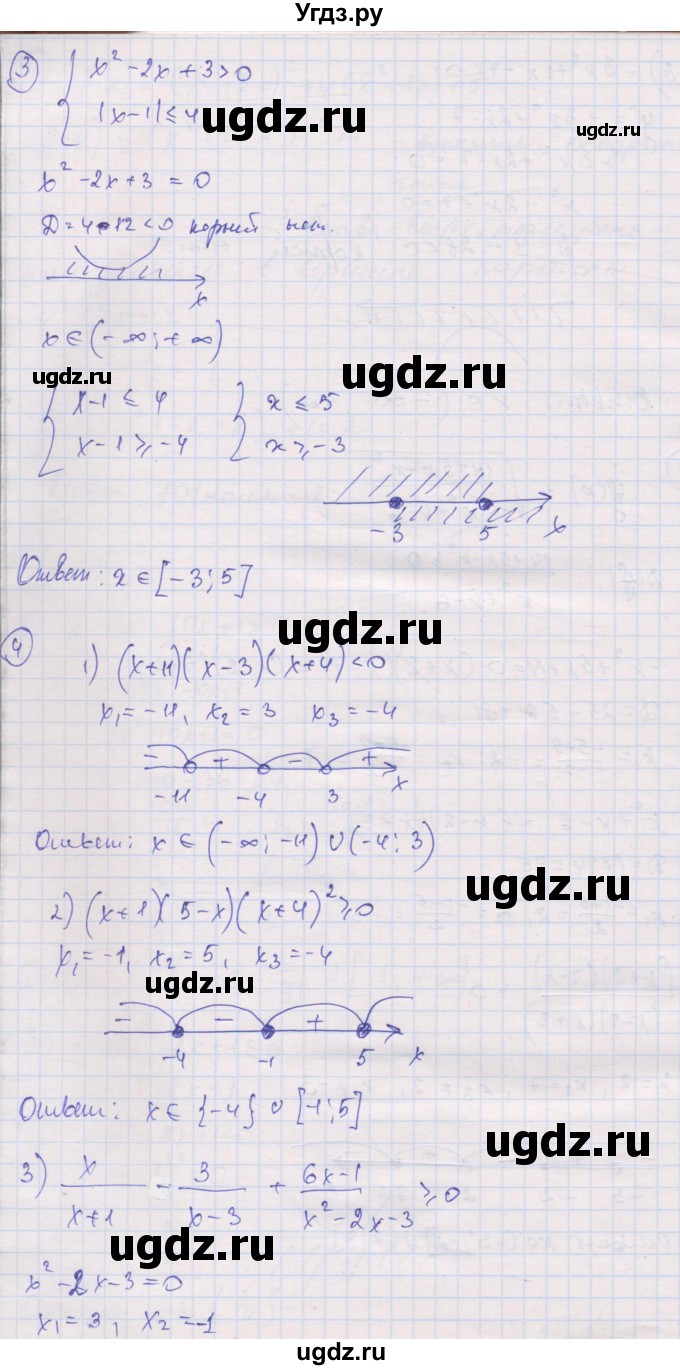 Угдз.ру
③ { x² - 2x + 3 > 0
|x-1| ≤ 4
ugdz.ru
ugdz.ru
x² - 2x + 3 = 0
D = 4 - 12 < 0 корней нет.
x
x ∈ (-∞; +∞)
ugdz.ru
ugdz.ru
{ x-1 ≤ 4 { x ≤ 5
x-1 ≥ -4 x ≥ -3
-3 5 x
Ответ: x ∈ [-3; 5]
ugdz.ru
④ 1) (x+11)(x-3)(x+4) < 0
x₁ = -11, x₂ = 3 x₃ = -4
- + - + x
-11 -4 3
Ответ: x ∈ (-∞; -11) ∪ (-4; 3)
ugdz.ru
2) (x+1)(5-x)(x+4)² ≥ 0
x₁ = -1, x₂ = 5, x₃ = -4
ugdz.ru
- - +
-4 -1 5 x
Ответ: x ∈ {-4} ∪ [-1; 5]
ugdz.ru
3) x/(x+1) - 3/(x-3) + (6x-1)/(x²-2x-3) ≥ 0
ugdz.ru
x² - 2x - 3 = 0
x₁ = 3, x₂ = -1
ugdz.ru